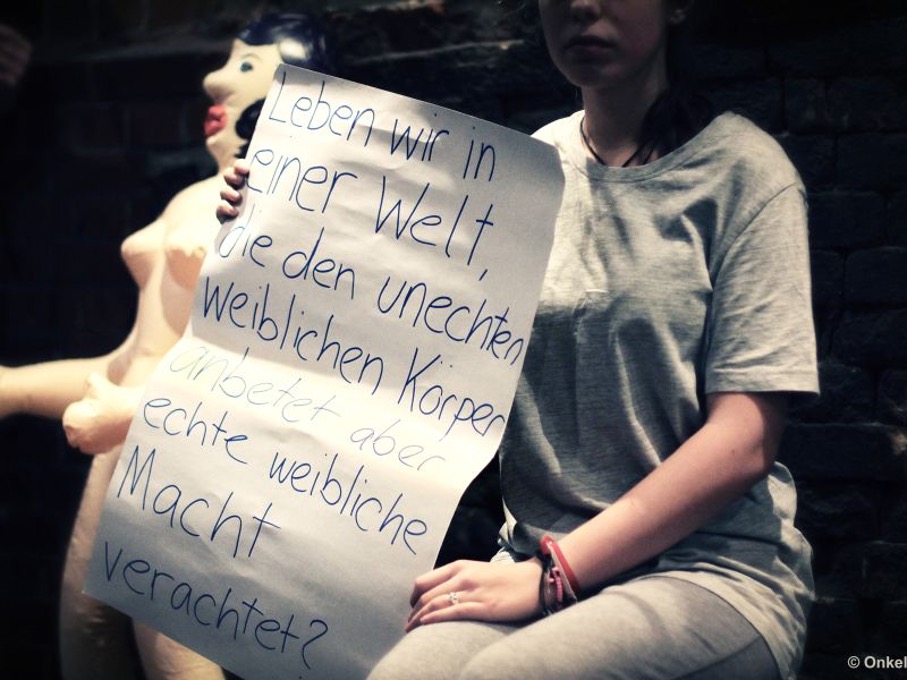 Leben wir in
einer Welt,
die den unechten
weiblichen Körper
anbetet aber
echte weibliche
Macht
verachtet?
© Onkel